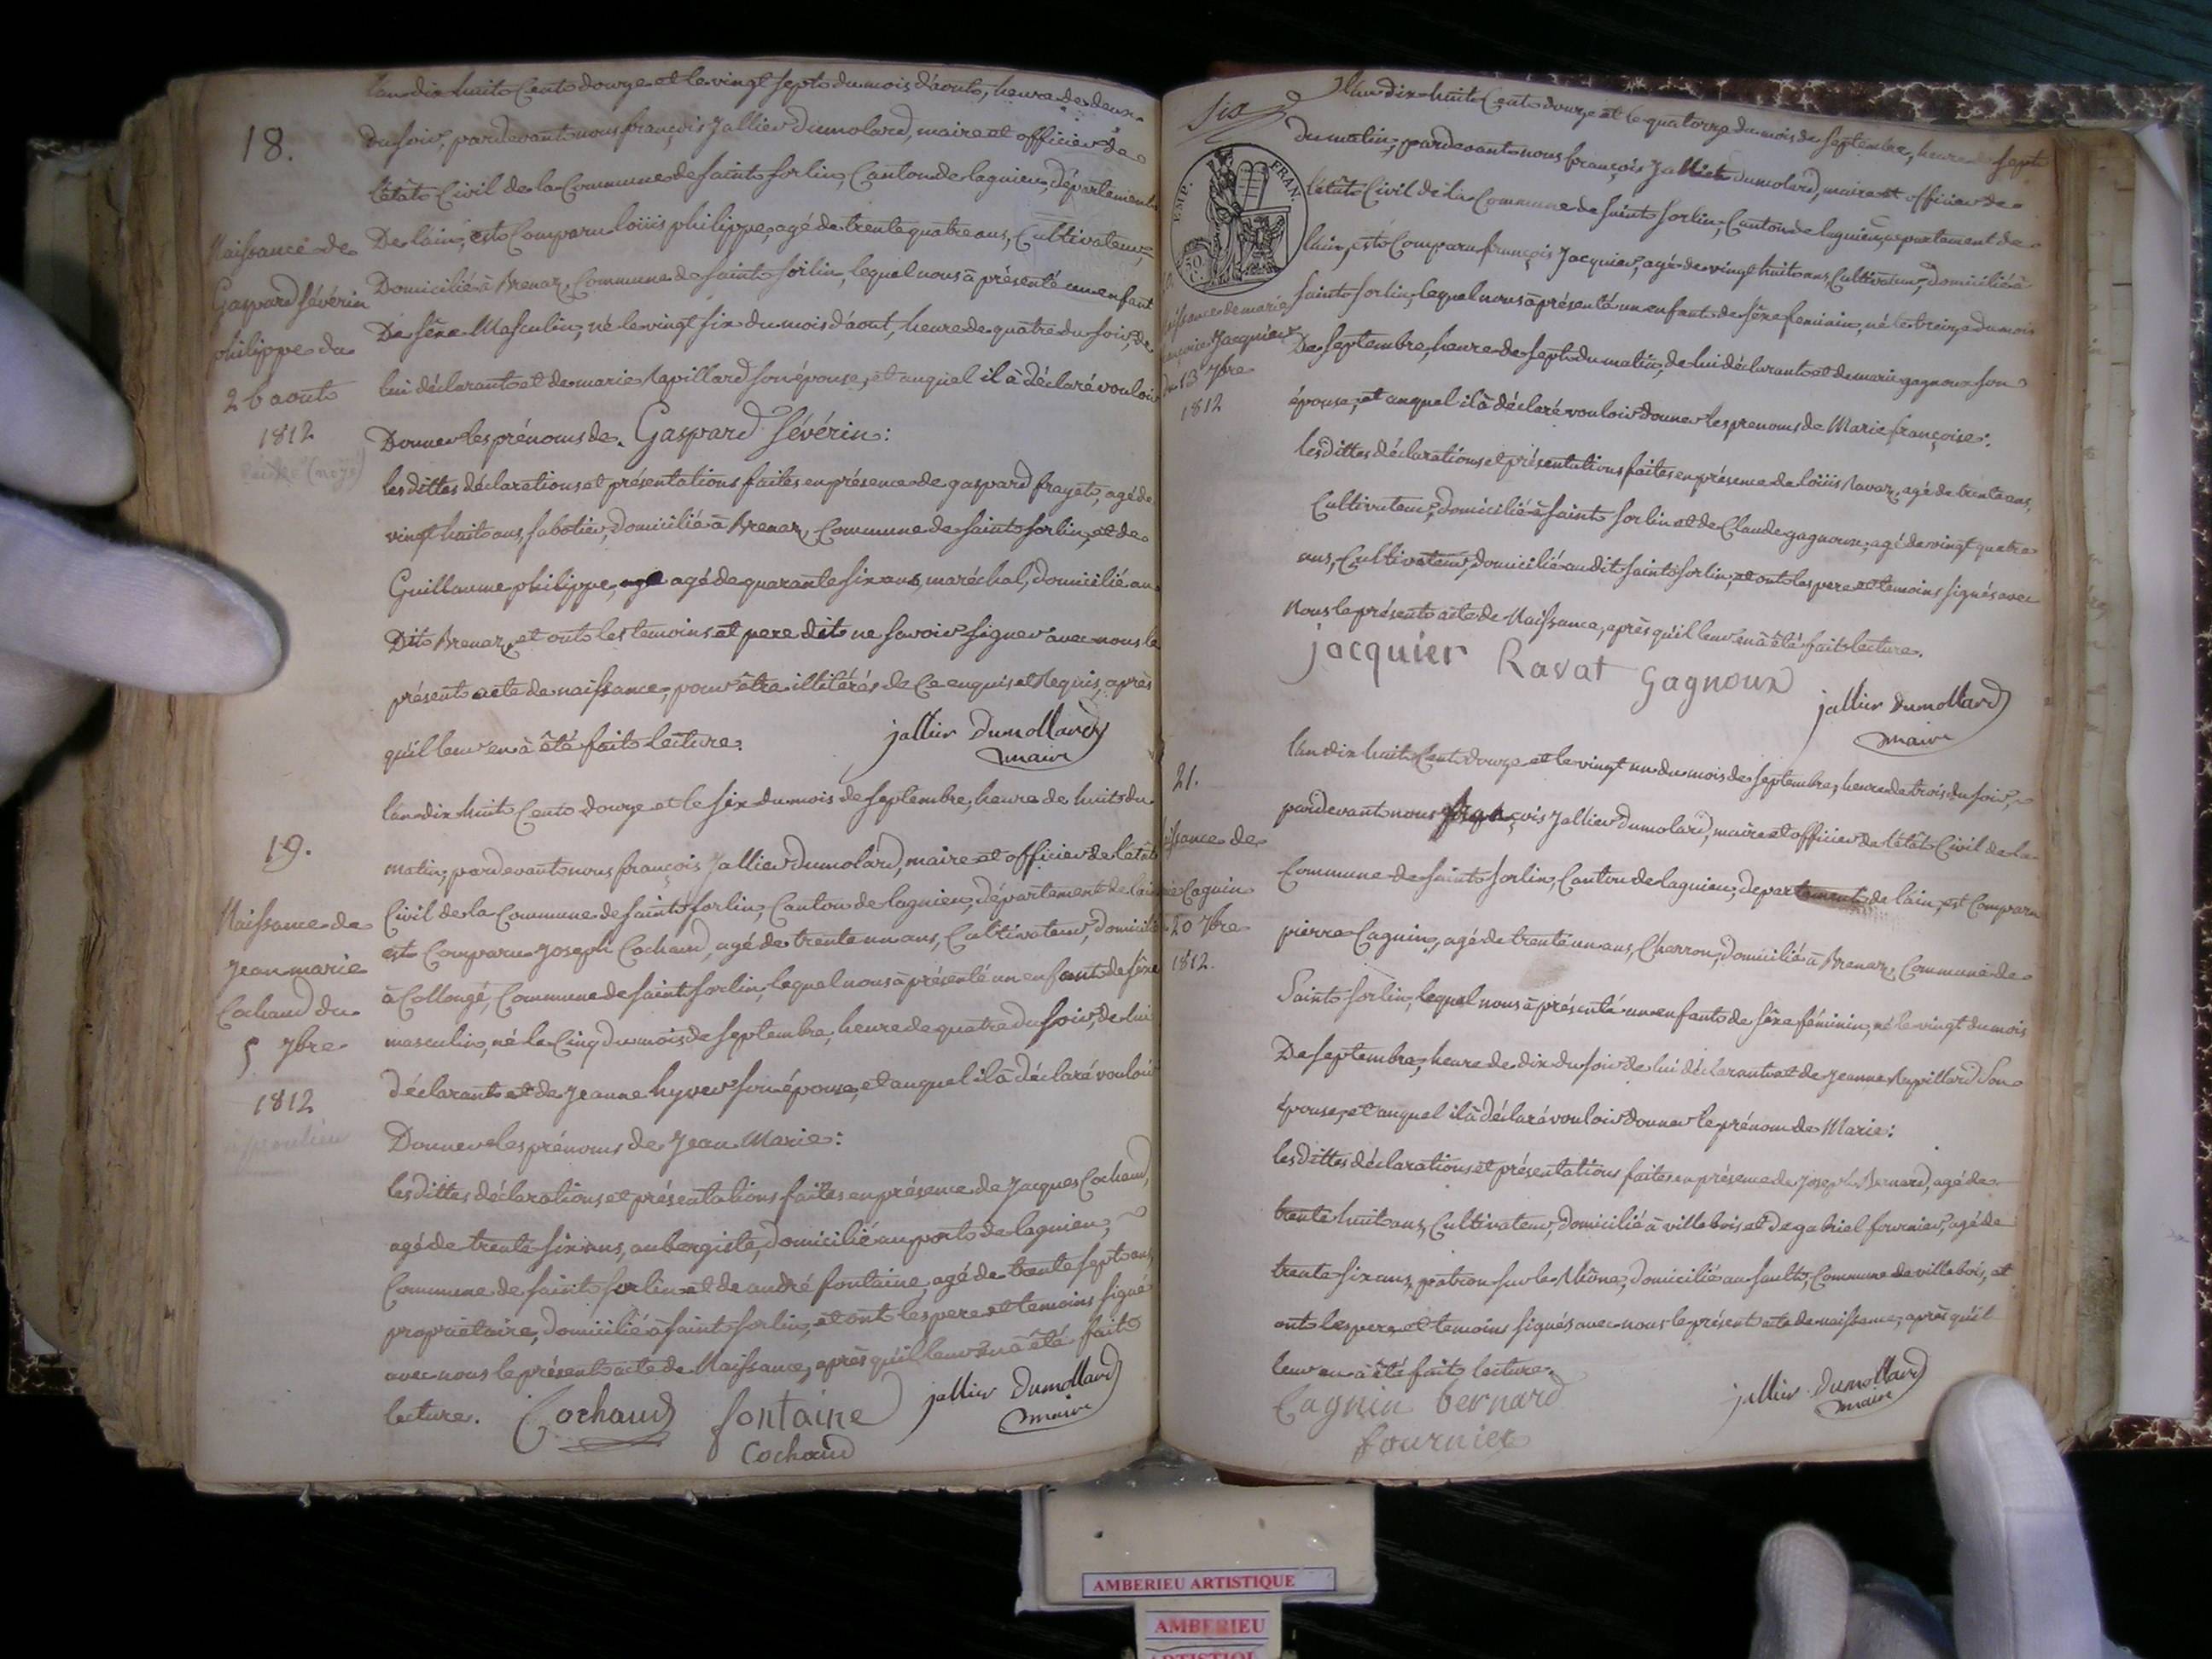 18.
Naissance de
Gaspard Sévérin
philippe du
26 aout
1812
l'an dix huit Cent douze et le vingt sept du mois d'août, heure de deux
du soir, pardevant nous françois Jallier Dumolard, maire et officier de
l'état Civil de la Commune de saint sorlin, Canton de lagnieu, département
De lain, est Comparu loüis philippe, agé de trente quatre ans, Cultivateur,
Domicilié à Brenaz, Commune de saint sorlin, lequel nous à présenté un enfant
De sèxe Masculin, né le vingt six du mois d'aout, heure de quatre du soir, de
lui déclarant et de marie Rapillard son épouse, et auquel il à déclaré vouloir
Donner les prénoms de. Gaspard Sévérin:
les dittes déclarations et présentations faites en présence de gaspard frayet, agé de
vingt huit ans, sabotier, domicilié à Brenaz, Commune de saint sorlin, et de
Guillaume philippe, agé de quarante six ans, maréchal, domicilié au
Dit Brenaz, et ont les temoins et pere dit ne savoir signer avec nous le
présent acte de naissance, pour être illitérés de Ce enquis et Requis, après
qu'il leur en à été fait lecture.
jallier dumollard
maire
19.
Naissance de
Jean marie
Cochand du
5 7bre
1812
l'an dix huit Cent douze et le six du mois de septembre, heure de huit du
matin, pardevant nous françois Jallier dumolard, maire et officier de l'état
Civil de la Commune de saint sorlin, Canton de lagnieu, département de lain
est Comparu Joseph Cochand, agé de trente un ans, Cultivateur, domicilié
à Collonge, Commune de saint sorlin, lequel nous à présenté un enfant de sèxe
masculin, né le Cinq du mois de septembre, heure de quatre du soir, de lui
déclarant et de Jeanne hyver son épouse, et auquel il à déclaré vouloir
Donner les prénoms de Jean Marie:
les dittes déclarations et présentations faites en présence de Jacques Cochand,
agé de trente six ans, aubergiste, domicilié au port de lagnieu,
Commune de saint sorlin et de andré fontaine, agé de trente sept ans,
propriétaire, domicilié à saint sorlin, et ont les pere et temoins signé
avec nous le présent acte de Naissance, après qu'il leur en à été fait
lecture.
Cochand fontaine jallier dumollard
maire
Cochand
EMP. FRAN.
50 C.
naissance de marie
françoise Jacquier
du 13 7bre
1812
L'an dix huit Cent douze et le quatorze du mois de septembre, heure de sept
du matin, pardevant nous françois Jallier dumolard, maire et officier de
l'état Civil de la Commune de saint sorlin, Canton de lagnieu, département de
lain, est Comparu françois Jacquier, agé de vingt huit ans, Cultivateur, domicilié à
saint sorlin, lequel nous à présenté un enfant de sèxe feminin, né le treize du mois
De septembre, heure de sept du matin, de lui déclarant et de marie gagnoux son
épouse, et auquel il à déclaré vouloir donner les prenoms de Marie françoise:
les dittes déclarations et présentations faites en présence de loüis Ravaz, agé de trente ans,
Cultivateur, domicilié à saint sorlin et de Claude gagnoux, agé de vingt quatre
ans, Cultivateur, domicilié audit saint sorlin, et ont les pere et temoins signés avec
Nous le présent acte de Naissance, après qu'il leur en à été fait lecture.
jacquier Ravat Gagnoux
jallier dumollard
maire
21.
naissance de
marie Cagnin
du 20 7bre
1812.
l'an dix huit Cent douze et le vingt un du mois de septembre, heure de trois du soir,
pardevant nous françois Jallier dumolard, maire et officier de l'état Civil de la
Commune de saint sorlin, Canton de lagnieu, departement de lain, est Comparu
pierre Cagnin, agé de trente un ans, Charron, domicilié à Brenaz, Commune de
Saint sorlin, lequel nous à présenté un enfant de sèxe féminin, né le vingt du mois
De septembre, heure de dix du soir de lui déclarant et de Jeanne Rapillard son
épouse, et auquel il à déclaré vouloir donner le prénom de Marie:
les dittes déclarations et présentations faites en présence de Joseph Bernard, agé de
trente huit ans, Cultivateur, domicilié à villebois et de gabriel fournier, agé de
trente six ans, patron sur le Rhône, domicilié au sault, Commune de villebois, et
ont les pere et temoins signés avec nous le présent acte de naissance, après qu'il
leur en à été fait lecture.
Cagnin bernard
fournier
jallier dumollard
maire
AMBERIEU ARTISTIQUE
AMBERIEU
ARTISTIQUE